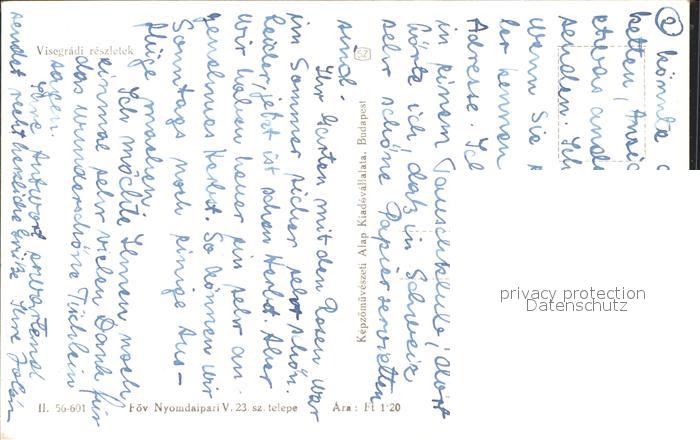 ② könnte
ketten, Ansic
etwas and
senden. Ich
wenn Sie
ler kennen
Adresse. Ich
in einem Tauschklub! Dort
hörte ich, daß in Schweiz
sehr schöne Papierservietten
sind.
Ihr Garten mit den Rosen war
im Sommer sicher sehr schön.
Leider, jetzt ist schon Herbst. Aber
wir haben heuer ein sehr an-
genehmes Herbst. So können wir
Sonntags noch einige Aus-
flüge machen.
Ich möchte Ihnen noch
einmal sehr vielen Dank für
das wunderschöne Tüchlein
sagen.
Ihre Antwort erwartend
sendet recht herzliche Grüße Ihre Jolán
Visegrádi részletek
Képzőművészeti Alap Kiadóvállalata, Budapest
II. 56-601 Főv Nyomdaipari V. 23. sz. telepe Ára: Ft 1·20
privacy protection
Datenschutz